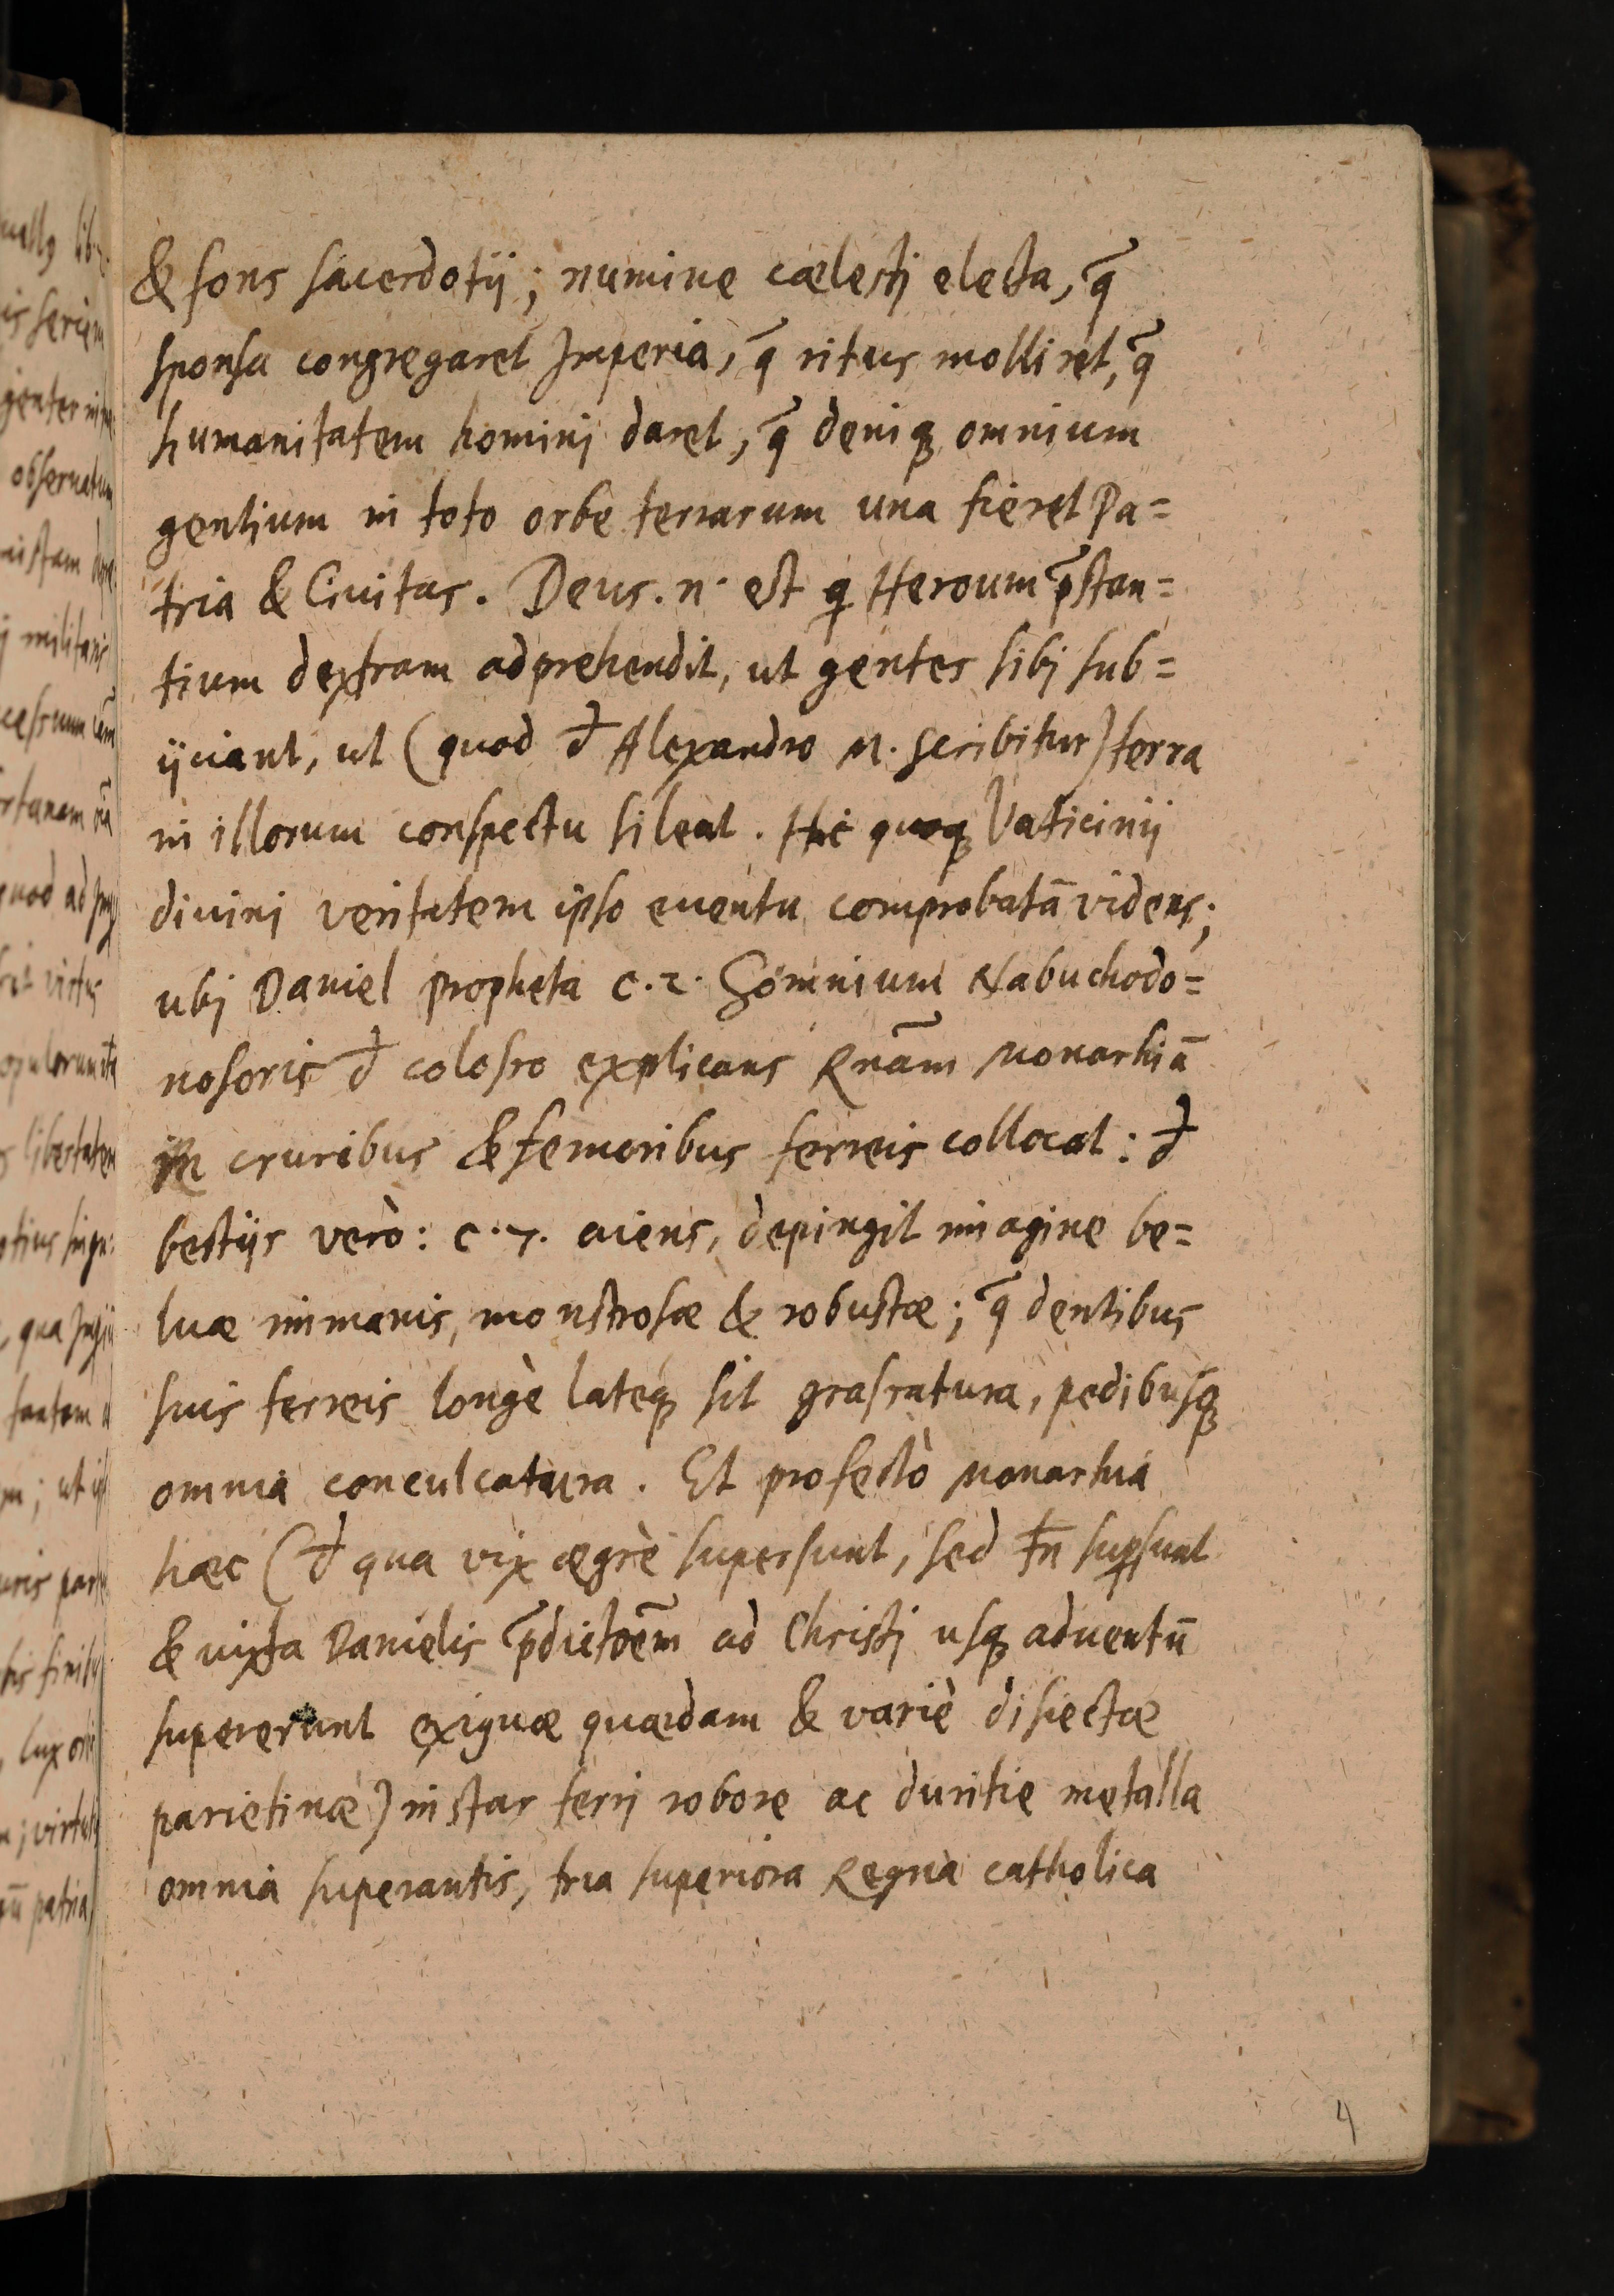 & fons sacerdotij; numine cælestj electa, q̃
sponsa congregaret Imperia, q̃ ritus molliret, q̃
humanitatem hominj daret, q̃ deniqꝫ omnium
gentium in toto orbe terrarum una fieret Pa=
tria & Ciuitas. Deus .n. est q Heroum p̃stan=
tium dextram adprehendit, ut gentes sibj sub=
ijciant, ut (quod đ Alexandro M. scribitur) terra
in illorum conspectu sileat. Hic quoqꝫ Vaticinij
diuinj veritatem ipso euentu comprobatā videns;
ubj Daniel propheta c.2. Somnium Nabuchodo=
nosoris đ colosso explicans Rnãm Monarhiā
in cruribus & femoribus ferreis collocat: đ
bestijs verò: c.7. aiens, depingit imagine be=
luæ immanis, monstrosæ & robustæ; q̃ dentibus
suis ferreis longè lateqꝫ sit grassatura, pedibusqꝫ
omnia conculcatura. Et profectò Monarhia
hæc (đ qua vix ægrè supersunt, sed tn̄ suꝑsunt
& iuxta Danielis p̃dictoēm ad Christj usqꝫ aduentū
supererunt exiguæ quædam & variè disiectæ
parietinæ) instar ferrj robore ac duritie metalla
omnia superantis, tria superiora Regna catholica
4